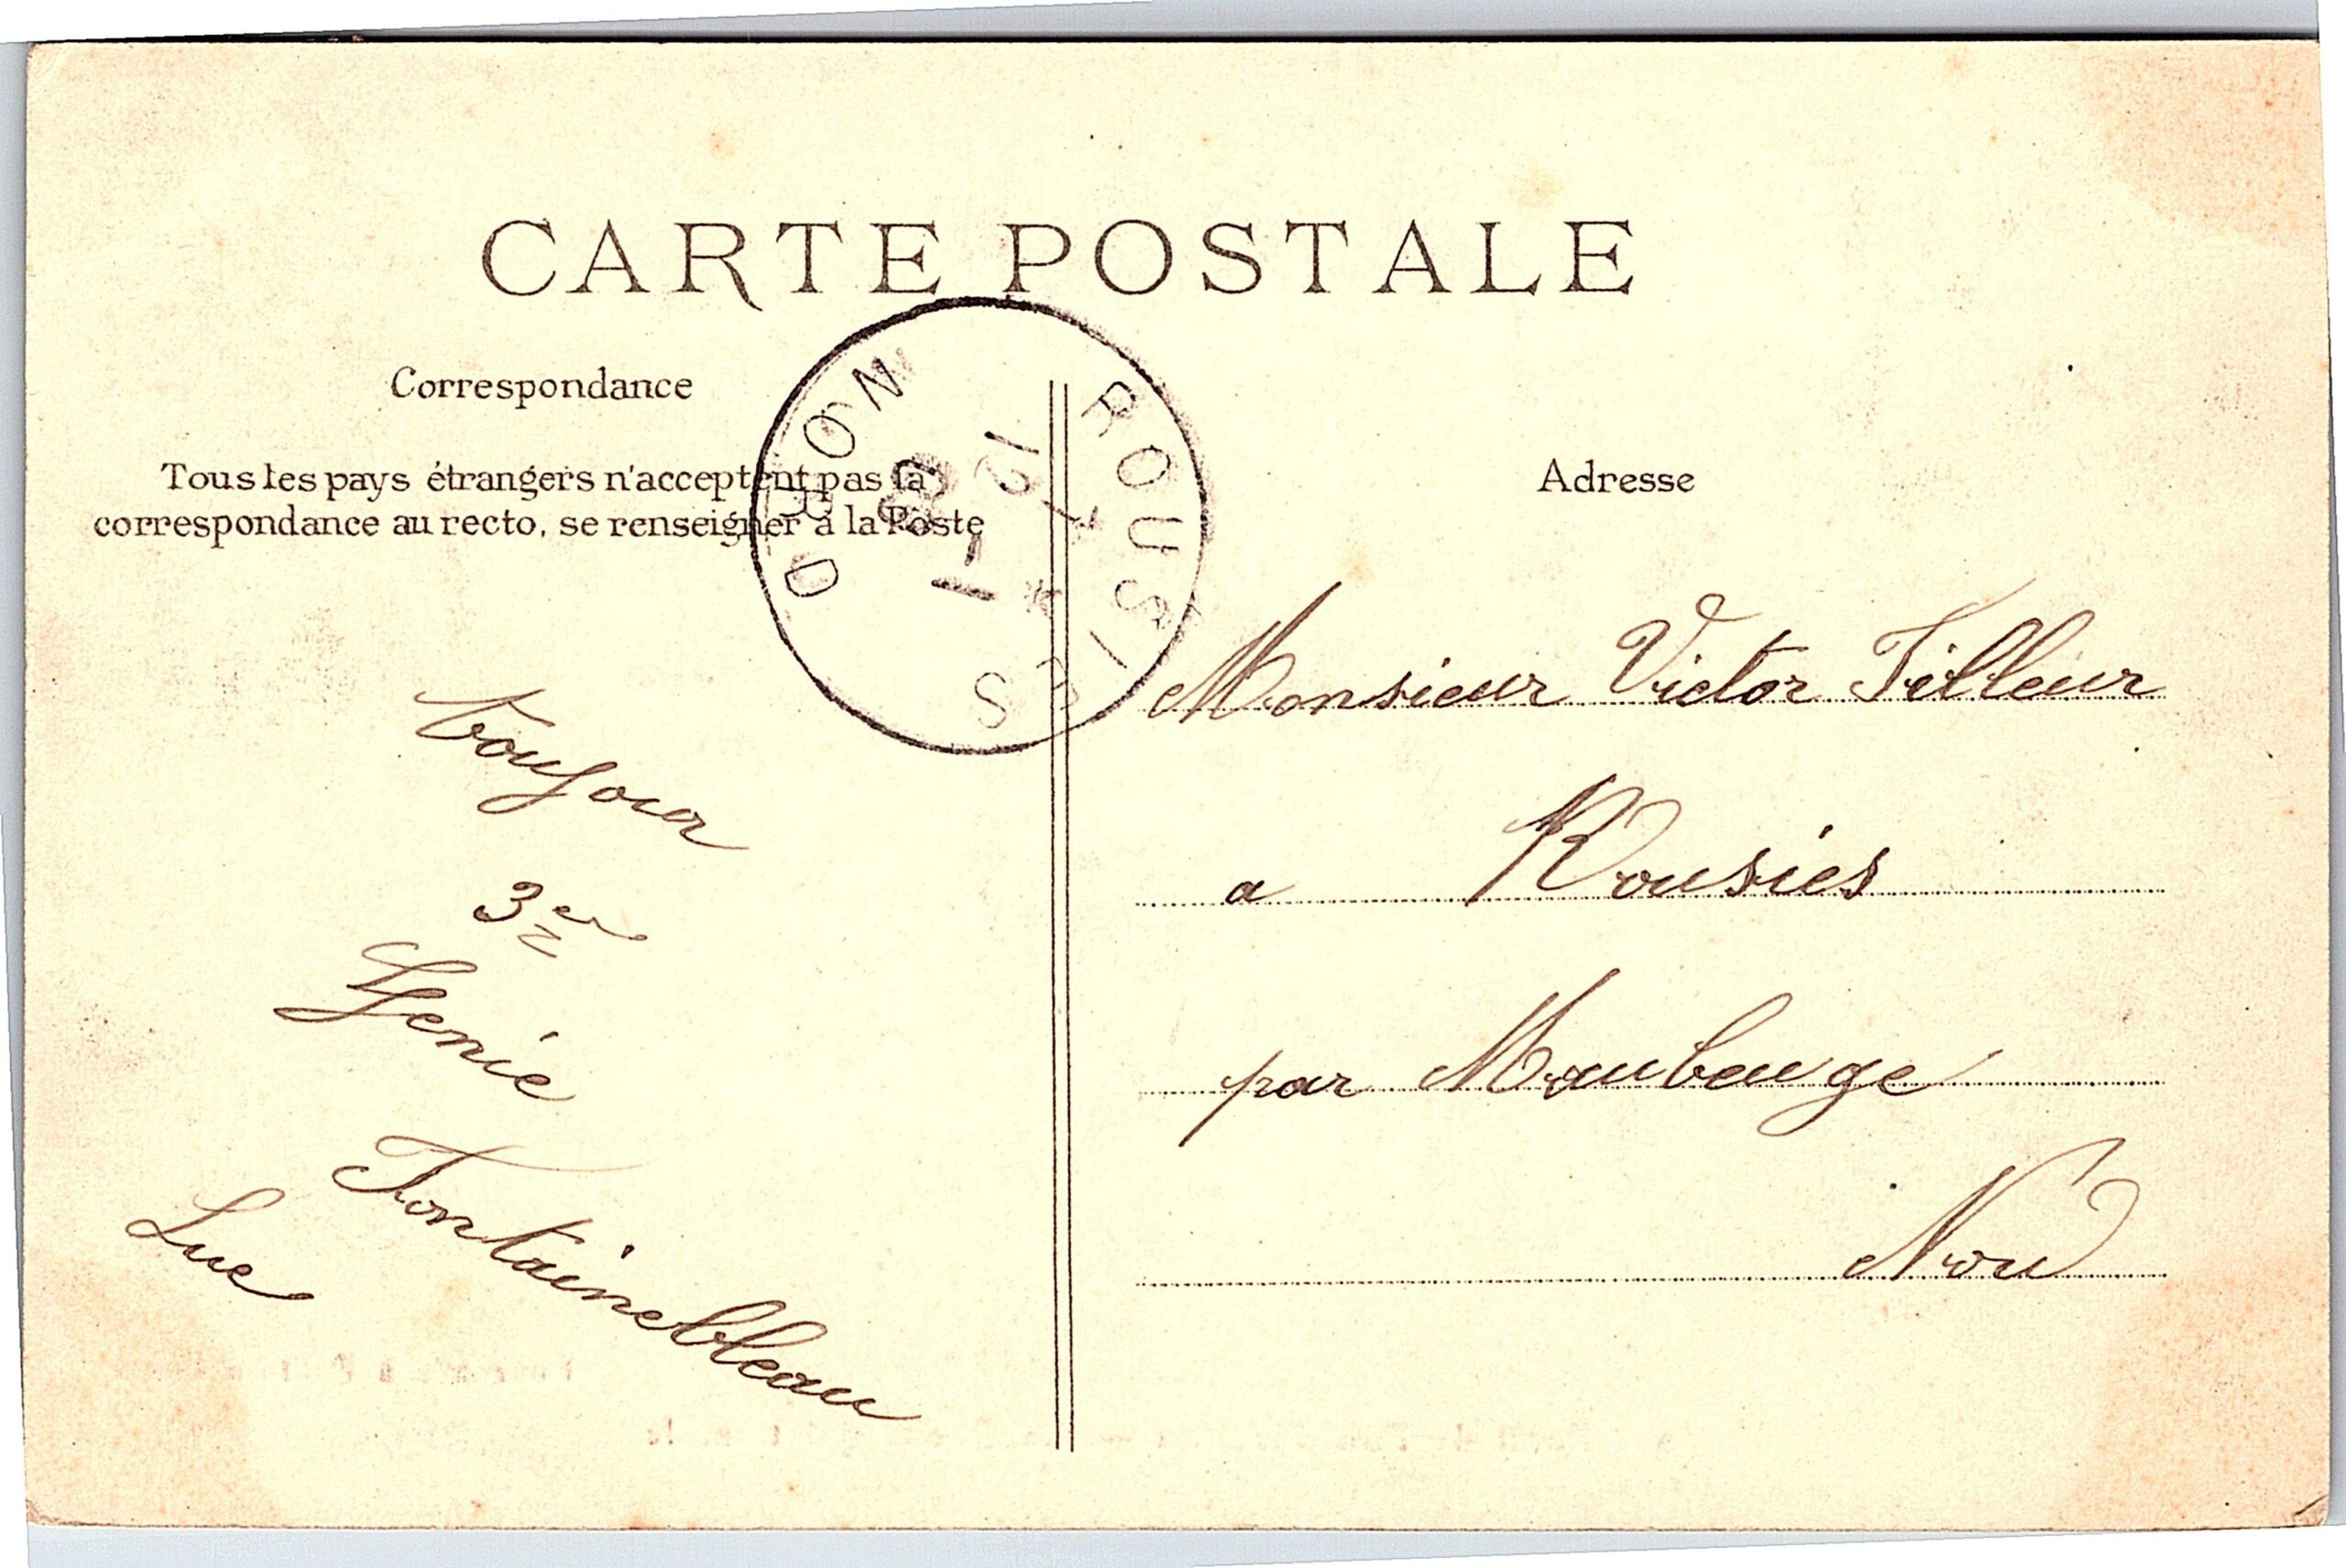 CARTE POSTALE
Correspondance
Tous les pays étrangers n'acceptent pas la
correspondance au recto, se renseigner à la Poste
Adresse
ROUSIES
NORD
12
1
Toujour
3e
Genie
Fontainebleau
Luc
Monsieur Victor Tilleur
a Rousies
par Maubeuge
Nord